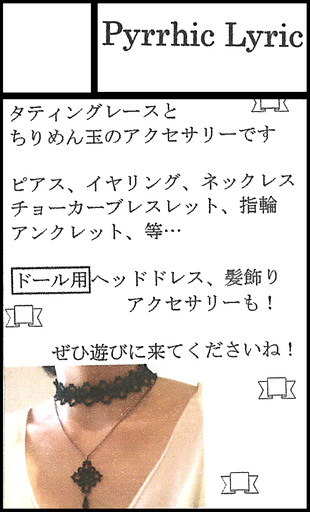 Pyrrhic Lyric
タティングレースと
ちりめん玉のアクセサリーです
ピアス、イヤリング、ネックレス
チョーカーブレスレット、指輪
アンクレット、等…
ドール用ヘッドドレス、髪飾り
アクセサリーも！
ぜひ遊びに来てくださいね！